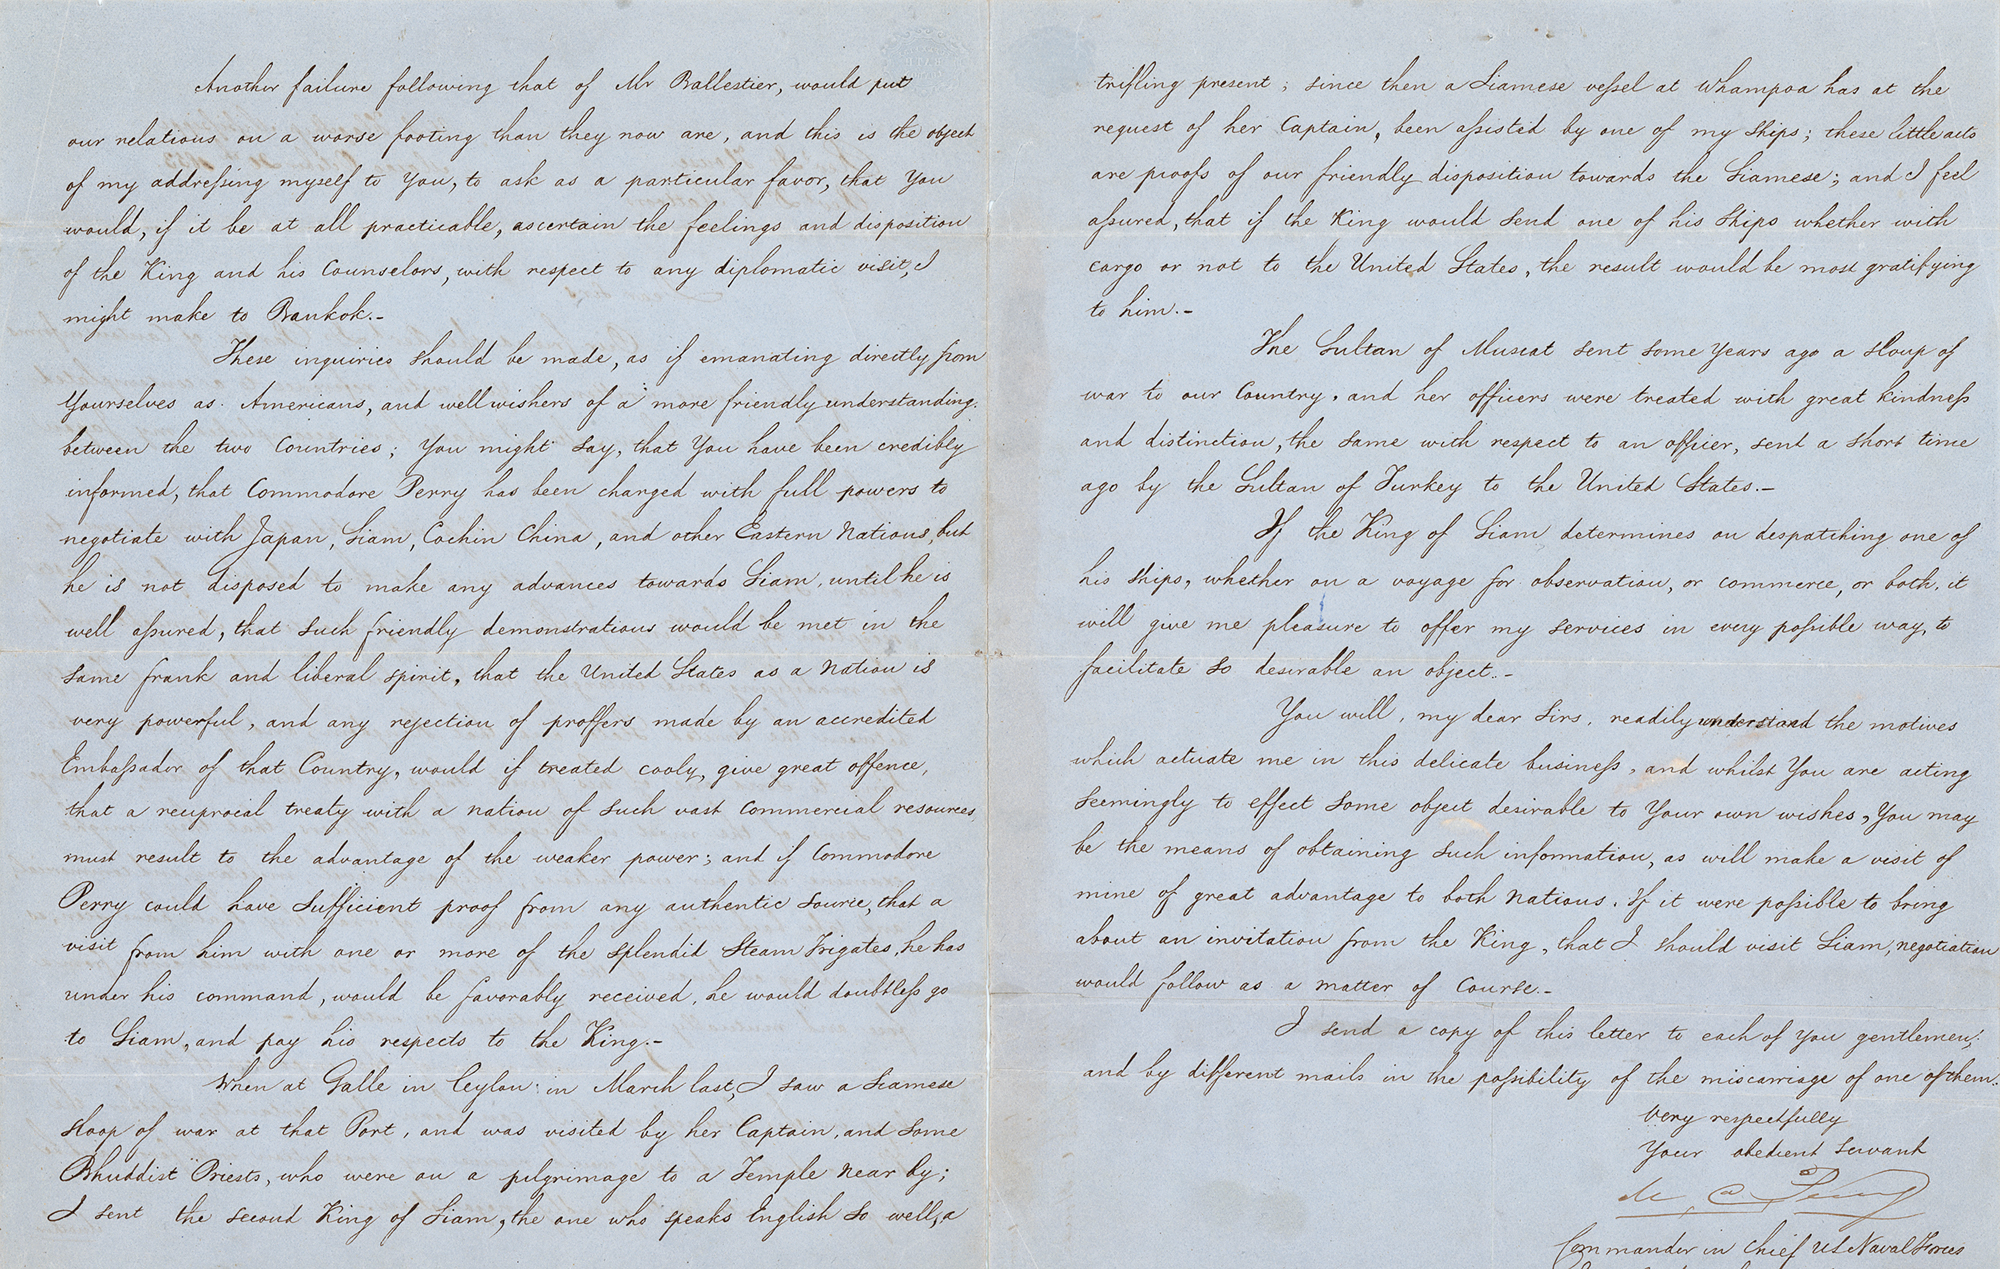 Another failure following that of Mr Ballestier, would put
our relations on a worse footing than they now are, and this is the object
of my addressing myself to You, to ask as a particular favor, that You
would, if it be at all practicable, ascertain the feelings and disposition
of the King and his Counselors, with respect to any diplomatic visit, I
might make to Bankok.-
These inquiries should be made, as if emanating directly from
Yourselves as Americans, and wellwishers of a more friendly understanding
between the two Countries; You might say, that You have been credibly
informed, that Commodore Perry has been charged with full powers to
negotiate with Japan, Siam, Cochin China, and other Eastern Nations, but
he is not disposed to make any advances towards Siam, until he is
well assured, that such friendly demonstrations would be met in the
same frank and liberal spirit, that the United States as a Nation is
very powerful, and any rejection of proffers made by an accredited
Embassador of that Country, would if treated cooly, give great offence,
that a reciprocal treaty with a nation of such vast Commercial resources,
must result to the advantage of the weaker power; and if Commodore
Perry could have sufficient proof from any authentic source, that a
visit from him with one or more of the splendid Steam Frigates, he has
under his command, would be favorably received, he would doubtless go
to Siam, and pay his respects to the King.-
When at Galle in Ceylon in March last, I saw a Siamese
sloop of war at that Port, and was visited by her Captain, and some
Bhuddist Priests, who were on a pilgrimage to a Temple near by;
I sent the second King of Siam, the one who speaks English so well, a
trifling present; since then a Siamese vessel at Whampoa has at the
request of her Captain, been assisted by one of my ships; these little acts
are proofs of our friendly disposition towards the Siamese; and I feel
assured, that if the King would send one of his ships whether with
cargo or not to the United States, the result would be most gratifying
to him.-
The Sultan of Muscat sent some Years ago a sloop of
war to our Country, and her officers were treated with great kindness
and distinction, the same with respect to an officer, sent a short time
ago by the Sultan of Turkey to the United States.-
If the King of Siam determines on despatching one of
his ships, whether on a voyage for observation, or commerce, or both, it
will give me pleasure to offer my services in every possible way, to
facilitate so desirable an object.-
You will, my dear Sirs, readily understand the motives
which actuate me in this delicate business, and whilst You are acting
seemingly to effect some object desirable to Your own wishes, You may
be the means of obtaining such information, as will make a visit of
mine of great advantage to both Nations. If it were possible to bring
about an invitation from the King, that I should visit Siam, negotiation
would follow as a matter of Course.-
I send a copy of this letter to each of You gentlemen,
and by different mails in the possibility of the miscarriage of one of them.
Very respectfully
Your obedient servant
M. C. Perry
Commander in Chief US Naval Forces